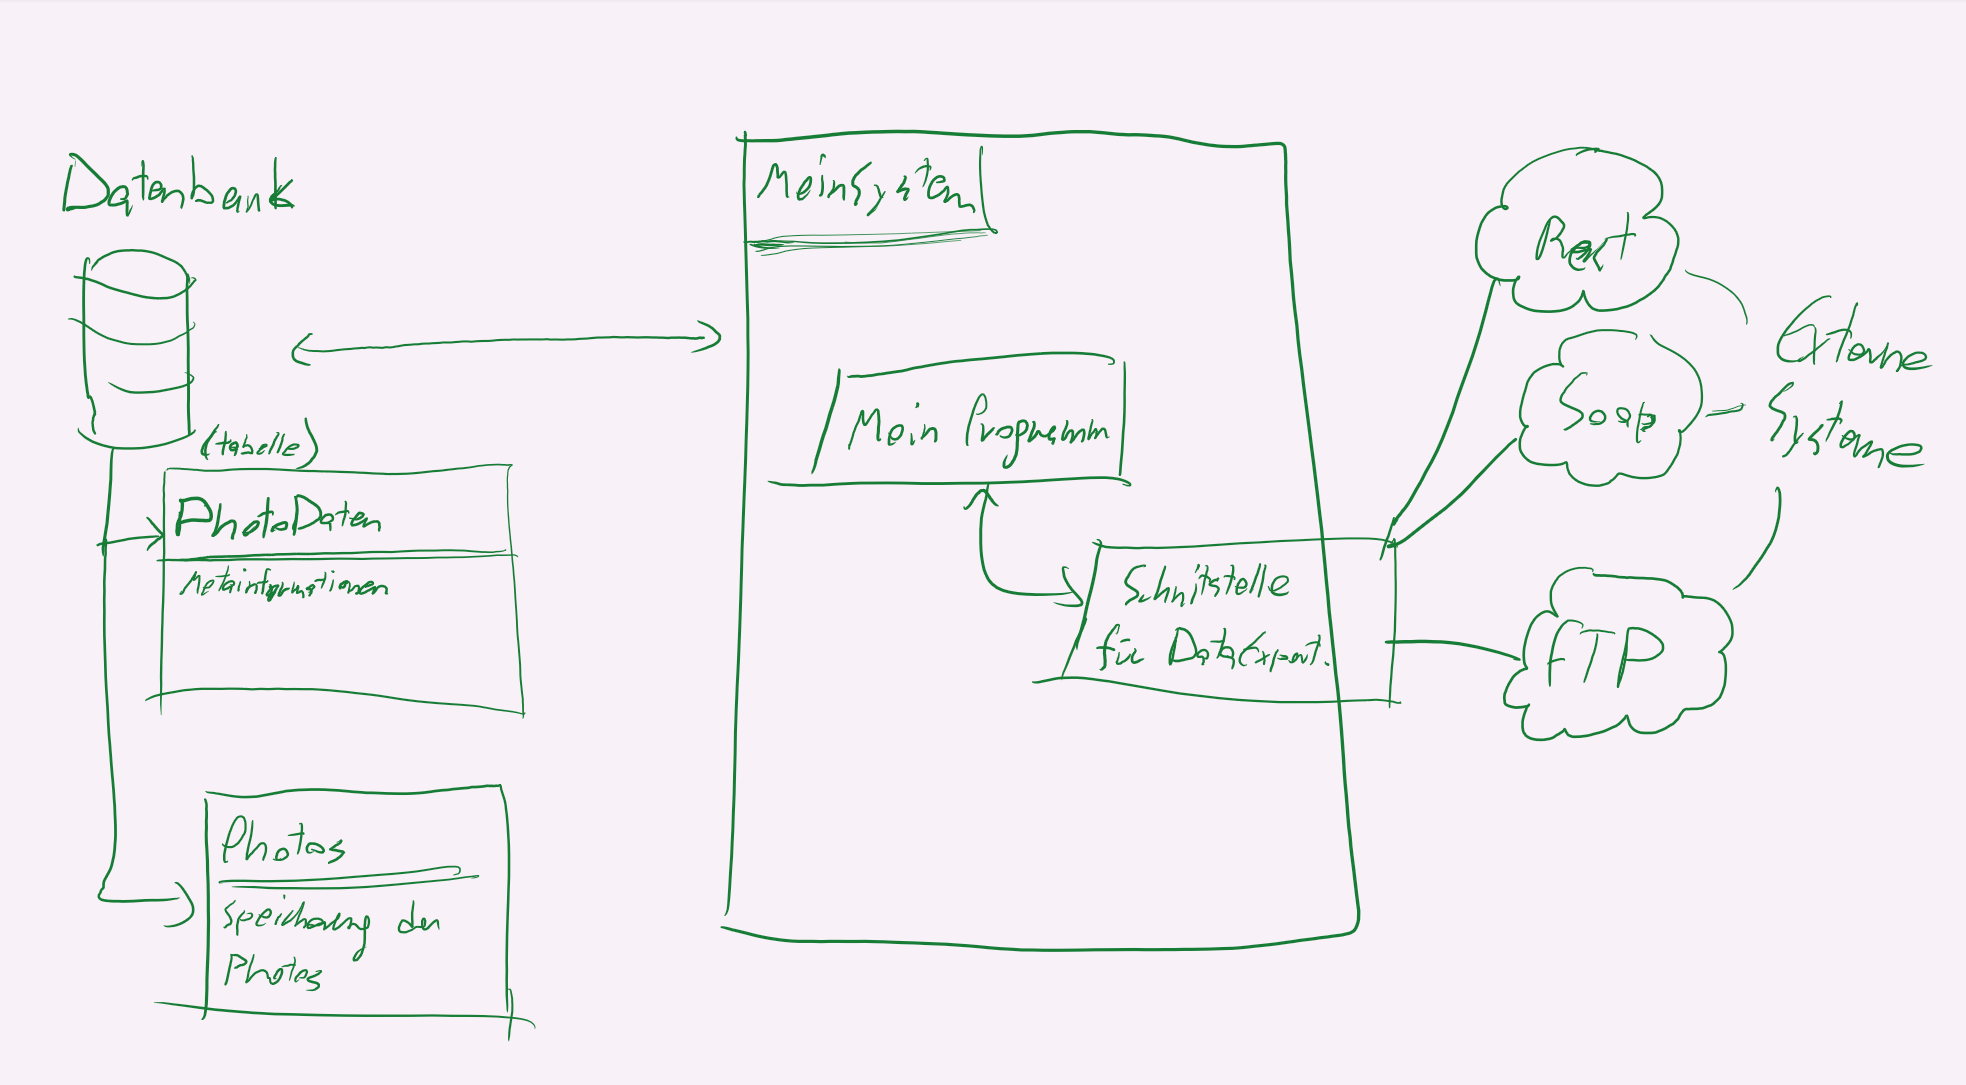 Datenbank
(tabelle)
PhotoDaten
Metainformationen
Photos
Speicherung der
Photos
MeinSystem
Mein Programm
Schnitstelle
für DataExport.
Rest
Soap
FTP
Externe
Systeme